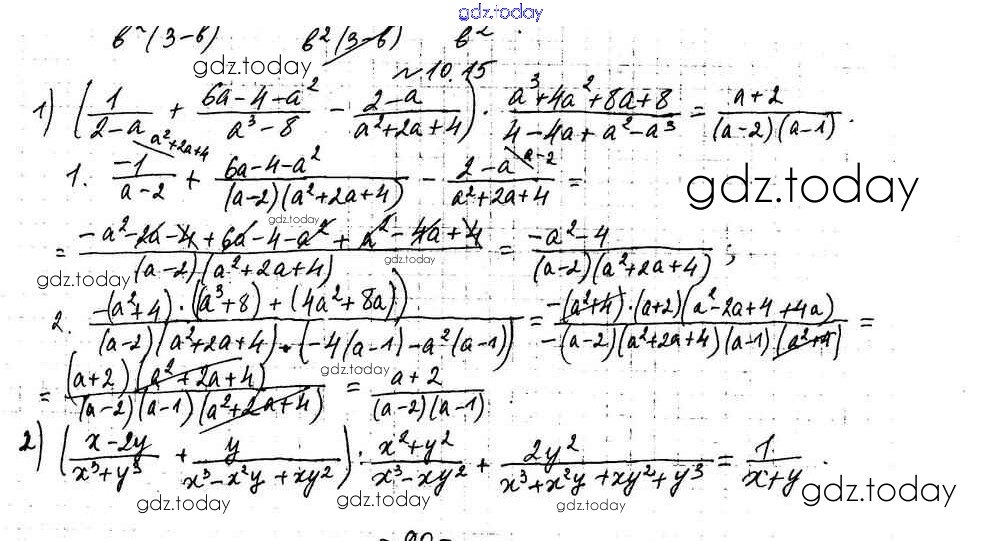 gdz.today
в²(3-в) в²(3-в) в²
gdz.today
№10.15
1) (1/(2-a) + (6a-4-a²)/(a³-8) - (2-a)/(a²+2a+4)) · (a³+4a²+8a+8)/(4-4a+a²-a³) = (a+2)/((a-2)(a-1)).
a²+2a+4 a-2
1. -1/(a-2) + (6a-4-a²)/((a-2)(a²+2a+4)) - (2-a)/(a²+2a+4) =
gdz.today
gdz.today
= (-a²-2a-4+6a-4-a²+a²-4a+4)/((a-2)(a²+2a+4)) = (-a²-4)/((a-2)(a²+2a+4));
gdz.today
gdz.today
2. (-(a²+4)·((a³+8)+(4a²+8a)))/((a-2)(a²+2a+4)·(-4(a-1)-a²(a-1))) = (-(a²+4)·(a+2)(a²-2a+4+4a))/(-(a-2)(a²+2a+4)(a-1)(a²+4)) =
gdz.today
= ((a+2)(a²+2a+4))/((a-2)(a-1)(a²+2a+4)) = (a+2)/((a-2)(a-1))
2) ((x-2y)/(x³+y³) + y/(x³-x²y+xy²)) · (x²+y²)/(x³-xy²) + 2y²/(x³+x²y+xy²+y³) = 1/(x+y).
gdz.today
gdz.today
gdz.today
gdz.today